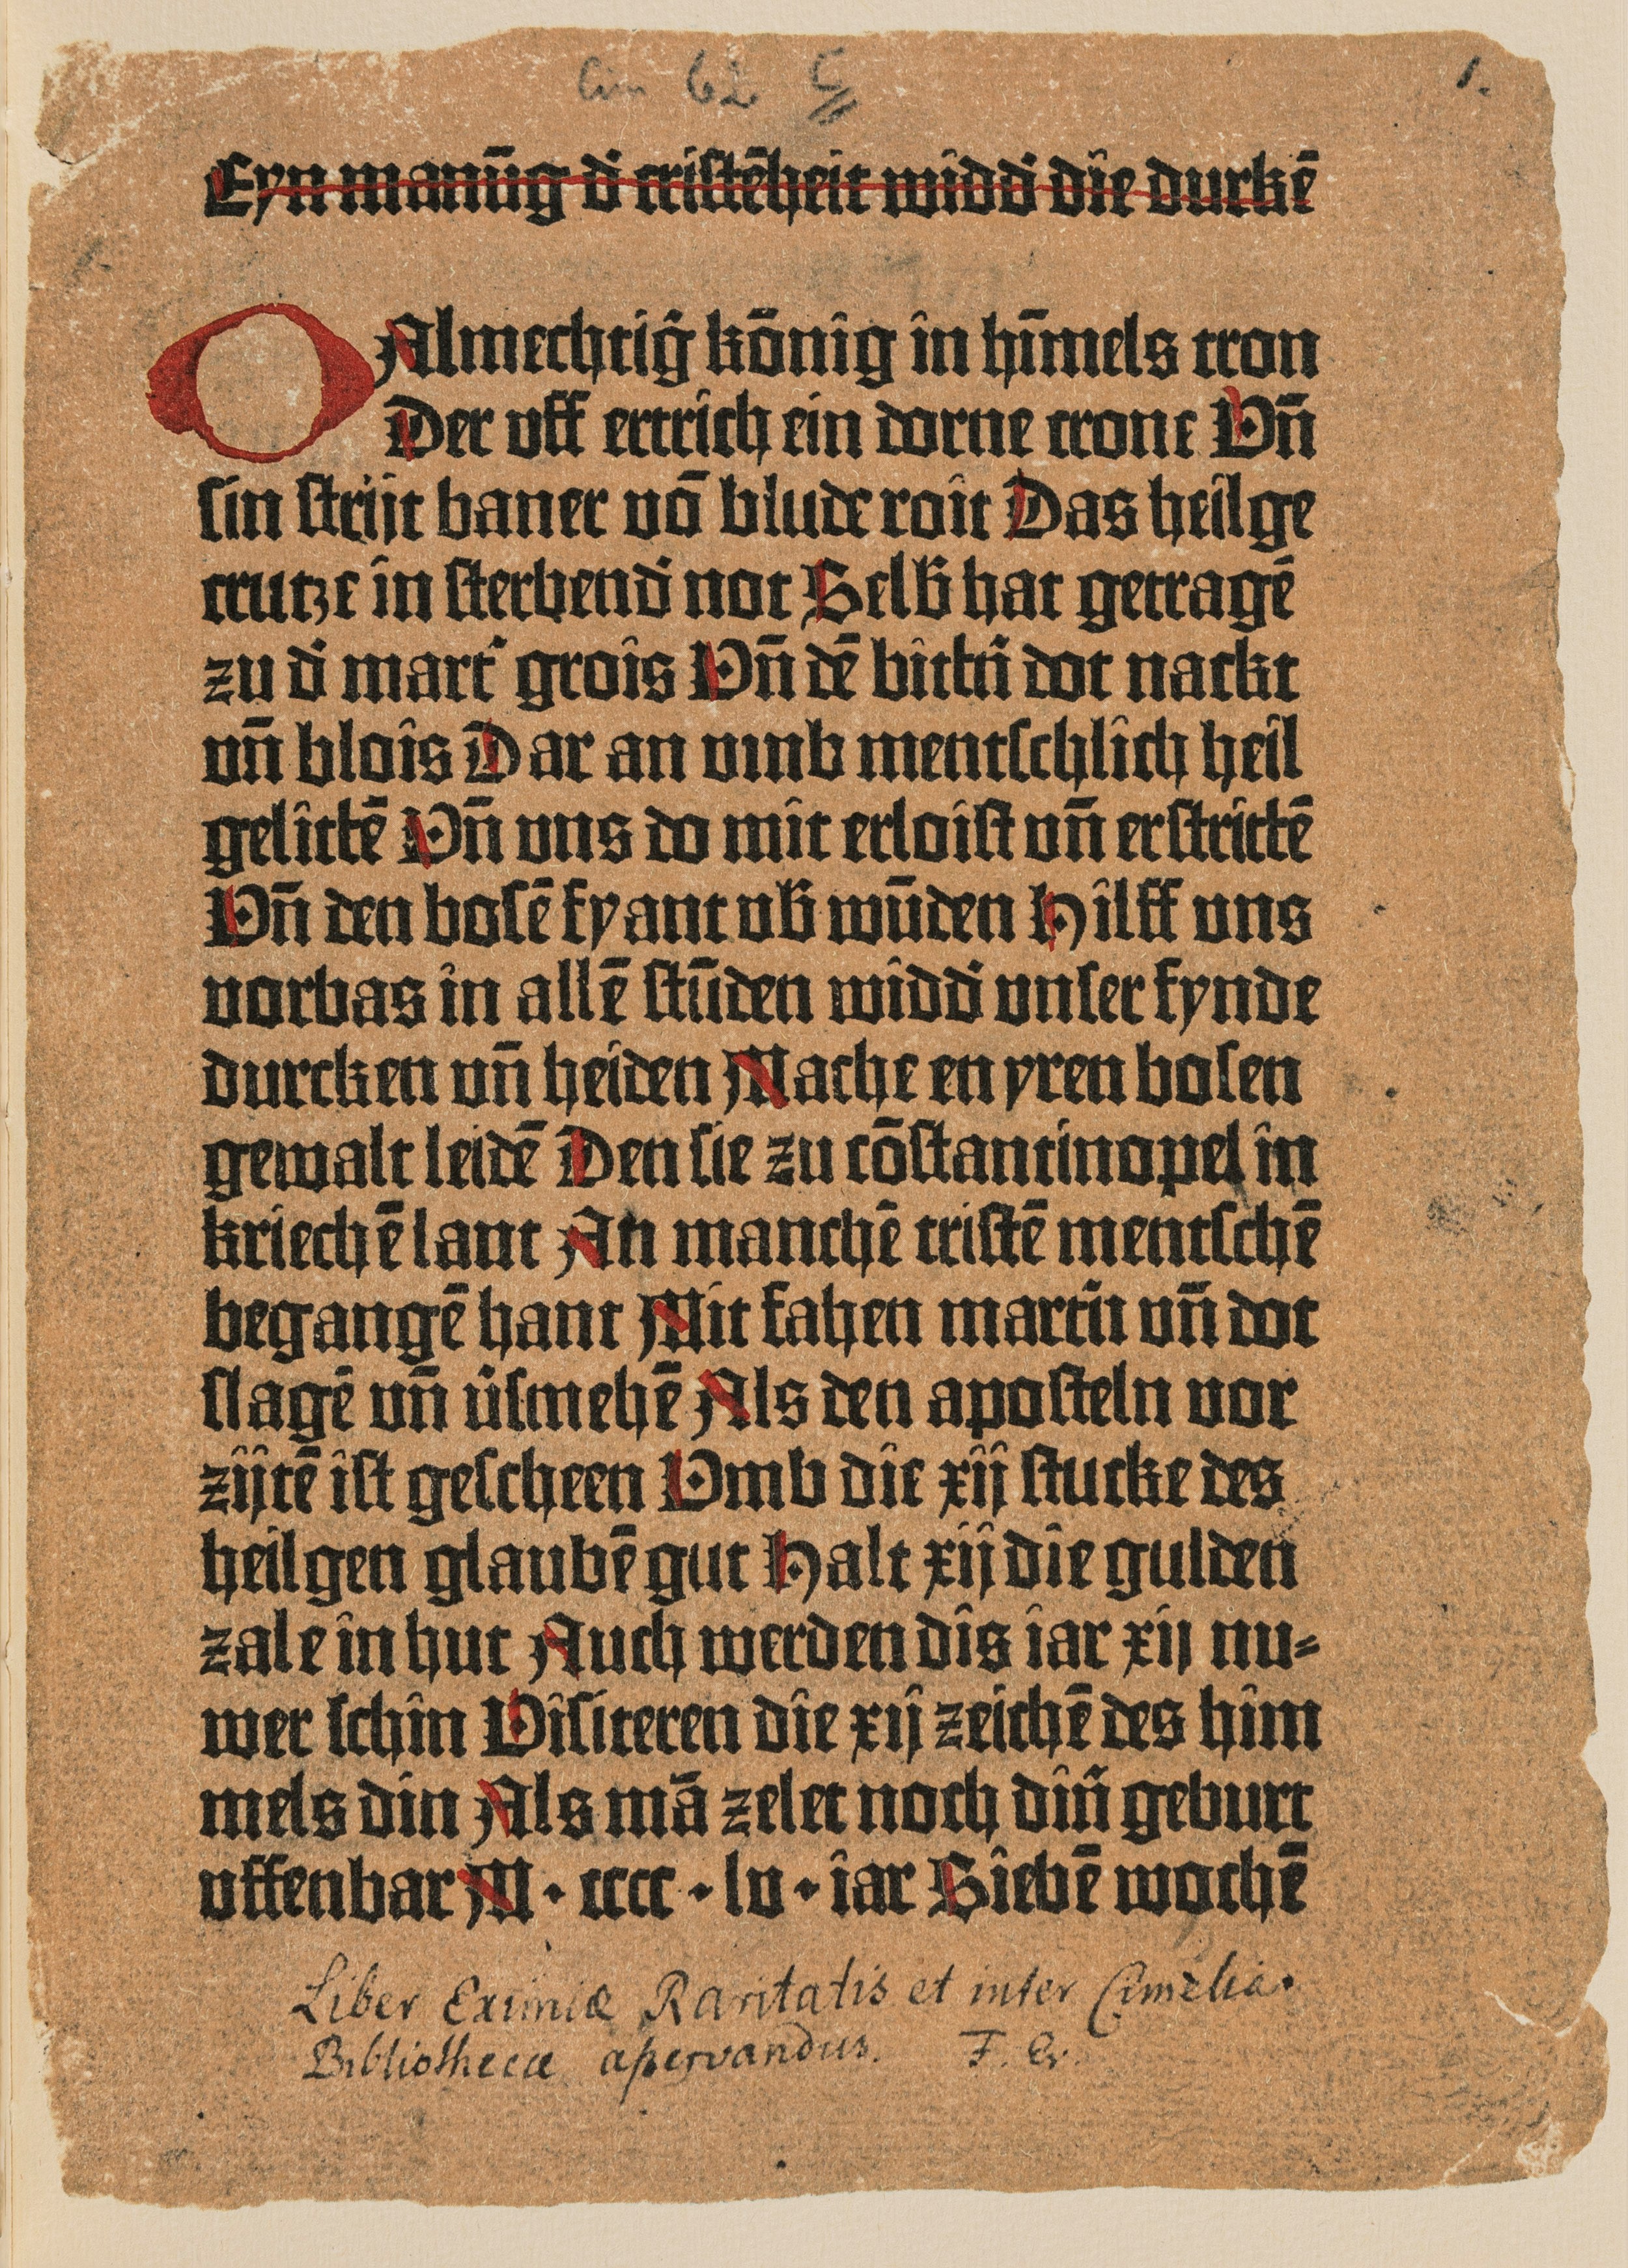 Cim 62 c
1.
Eyn manūg d̕ cristēheit widd̕ die durkē
O Almechtig̕ kōnig in hīmels tron
Der uff ertrich ein dorne crone Vn̄
sin strijt baner vō blude roit Das heilge
crutze in sterbend̕ not Selb̕ hat getragē
zu d̕ mart̕ grois Vn̄ dē bittn̕ dot nackt
vn̄ blois Dar an vmb mentschlich heil
gelittē Vn̄ vns do mit erloist vn̄ erstrittē
Vn̄ den bosē fyant vb̕ wūden Hilff vns
vorbas in allē stūden widd̕ vnser fynde
durcken vn̄ heiden Mache en yren bosen
gewalt leidē Den sie zu cōstantinopel in
kriechē lant An manchē cristē mentschē
begangē hant Mit fahen martn̕ vn̄ dot
slagē vn̄ v̕smehē Als den aposteln vor
zijtē ist gescheen Vmb die xij stucke des
heilgen glaubē gut Halt xij die gulden
zale in hut Auch werden dis iar xij nu=
wer schin Visiteren die xij zeichē des him
mels din Als mā zelet noch din̕ geburt
uffenbar M · cccc · lv · iar Siebē wochē
Liber Eximiæ Raritatis et inter Cimelia
Bibliothecæ aservandus. F. Er.